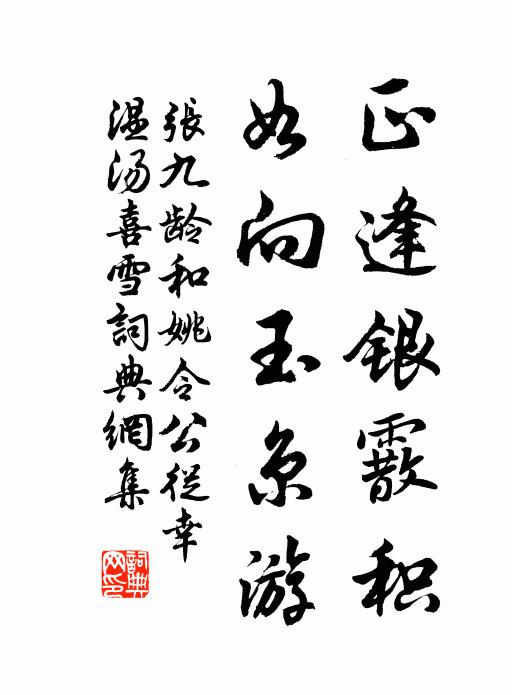 正逢银霰积
如向玉京游
張九龄和姚令公從幸
温汤喜雪詞典網集
詞典网印